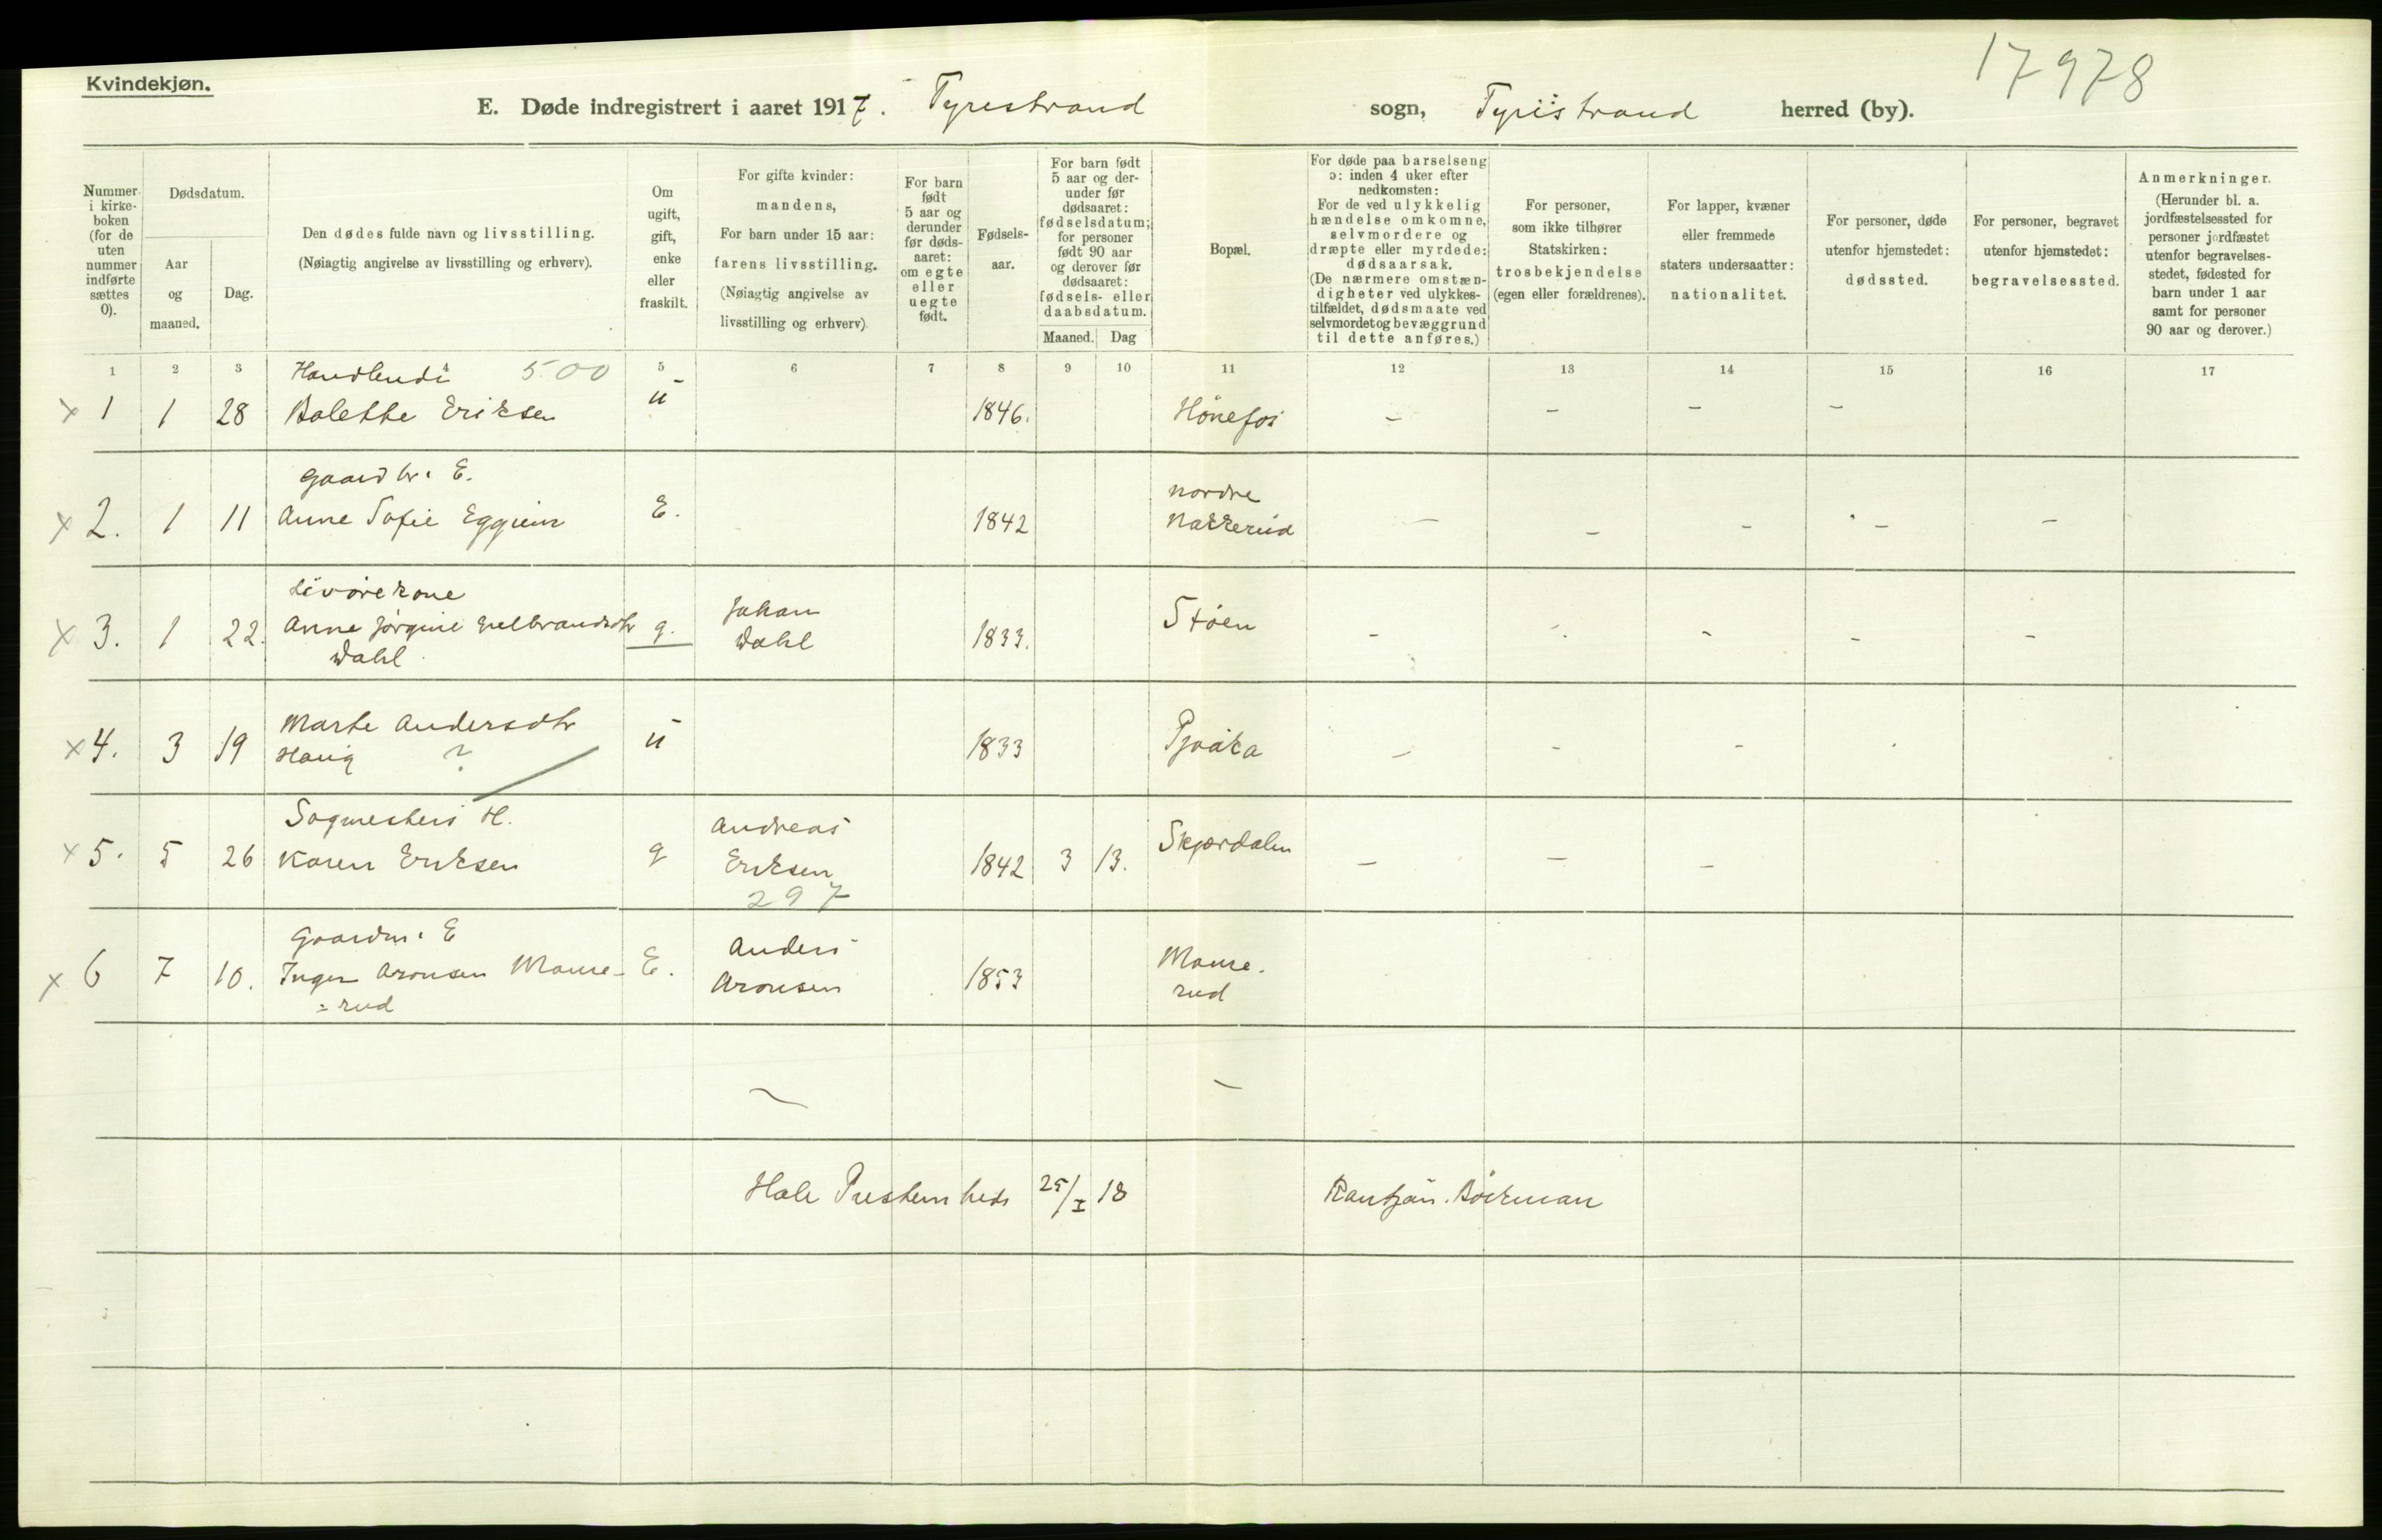 17978
Kvindekjøn.
E. Døde indregistrert i aaret 1917. Tyrestrand sogn, Tyristrand herred (by).
Nummer i kirkeboken (for de uten nummer indførte sættes 0).
Dødsdatum.
Aar og maaned.
Dag.
Den dødes fulde navn og livsstilling.
(Nøiagtig angivelse av livsstilling og erhverv).
Om ugift, gift, enke eller fraskilt.
For gifte kvinder: mandens,
For barn under 15 aar: farens livsstilling.
(Nøiagtig angivelse av livsstilling og erhverv)
For barn født 5 aar og derunder før dødsaaret: om egte eller uegte født.
Fødselsaar.
For barn født 5 aar og derunder før dødsaaret: fødselsdatum; for personer født 90 aar og derover før dødsaaret: fødsels- eller daabsdatum.
Maaned. Dag
Bopæl.
For døde paa barselseng ɔ: inden 4 uker efter nedkomsten:
For de ved ulykkelig hændelse omkomne, selvmordere og dræpte eller myrdede: dødsaarsak.
(De nærmere omstændigheter ved ulykkestilfældet, dødsmaate ved selvmordet og bevæggrund til dette anføres.)
For personer, som ikke tilhører Statskirken: trosbekjendelse (egen eller forældrenes).
For lapper, kvæner eller fremmede staters undersaatter: nationalitet.
For personer, døde utenfor hjemstedet: dødssted.
For personer, begravet utenfor hjemstedet: begravelsessted.
Anmerkninger.
(Herunder bl. a. jordfæstelsessted for personer jordfæstet utenfor begravelsesstedet, fødested for barn under 1 aar samt for personer 90 aar og derover.)
1 2 3 4 5 6 7 8 9 10 11 12 13 14 15 16 17
Handlende 500
x 1 1 28 Bolette Eriksen u 1846. Hønefos - - - -
Gaardbr. E.
x 2. 1 11 Anne Sofie Eggum E. 1842 nordre Nakkerud - - - - -
Livørekone
x 3. 1 22. Anne Jørgine Gulbrandsdtr g. Johan Dahl 1833. Støen - - - - -
Dahl
x 4. 3 19 Marte Andersdtr u 1833 Pjaaka - - -
Haug ?
Sagmesters H.
x 5. 5 26 Karen Eriksen g Andreas Eriksen 1842 3 13. Skjærdalen - - -
297
Gaardm. E
x 6 7 10. Inger Aronsen Maure- E. Anders Aronsen 1853 Maure-
=rud rud
Hole 25/I 18